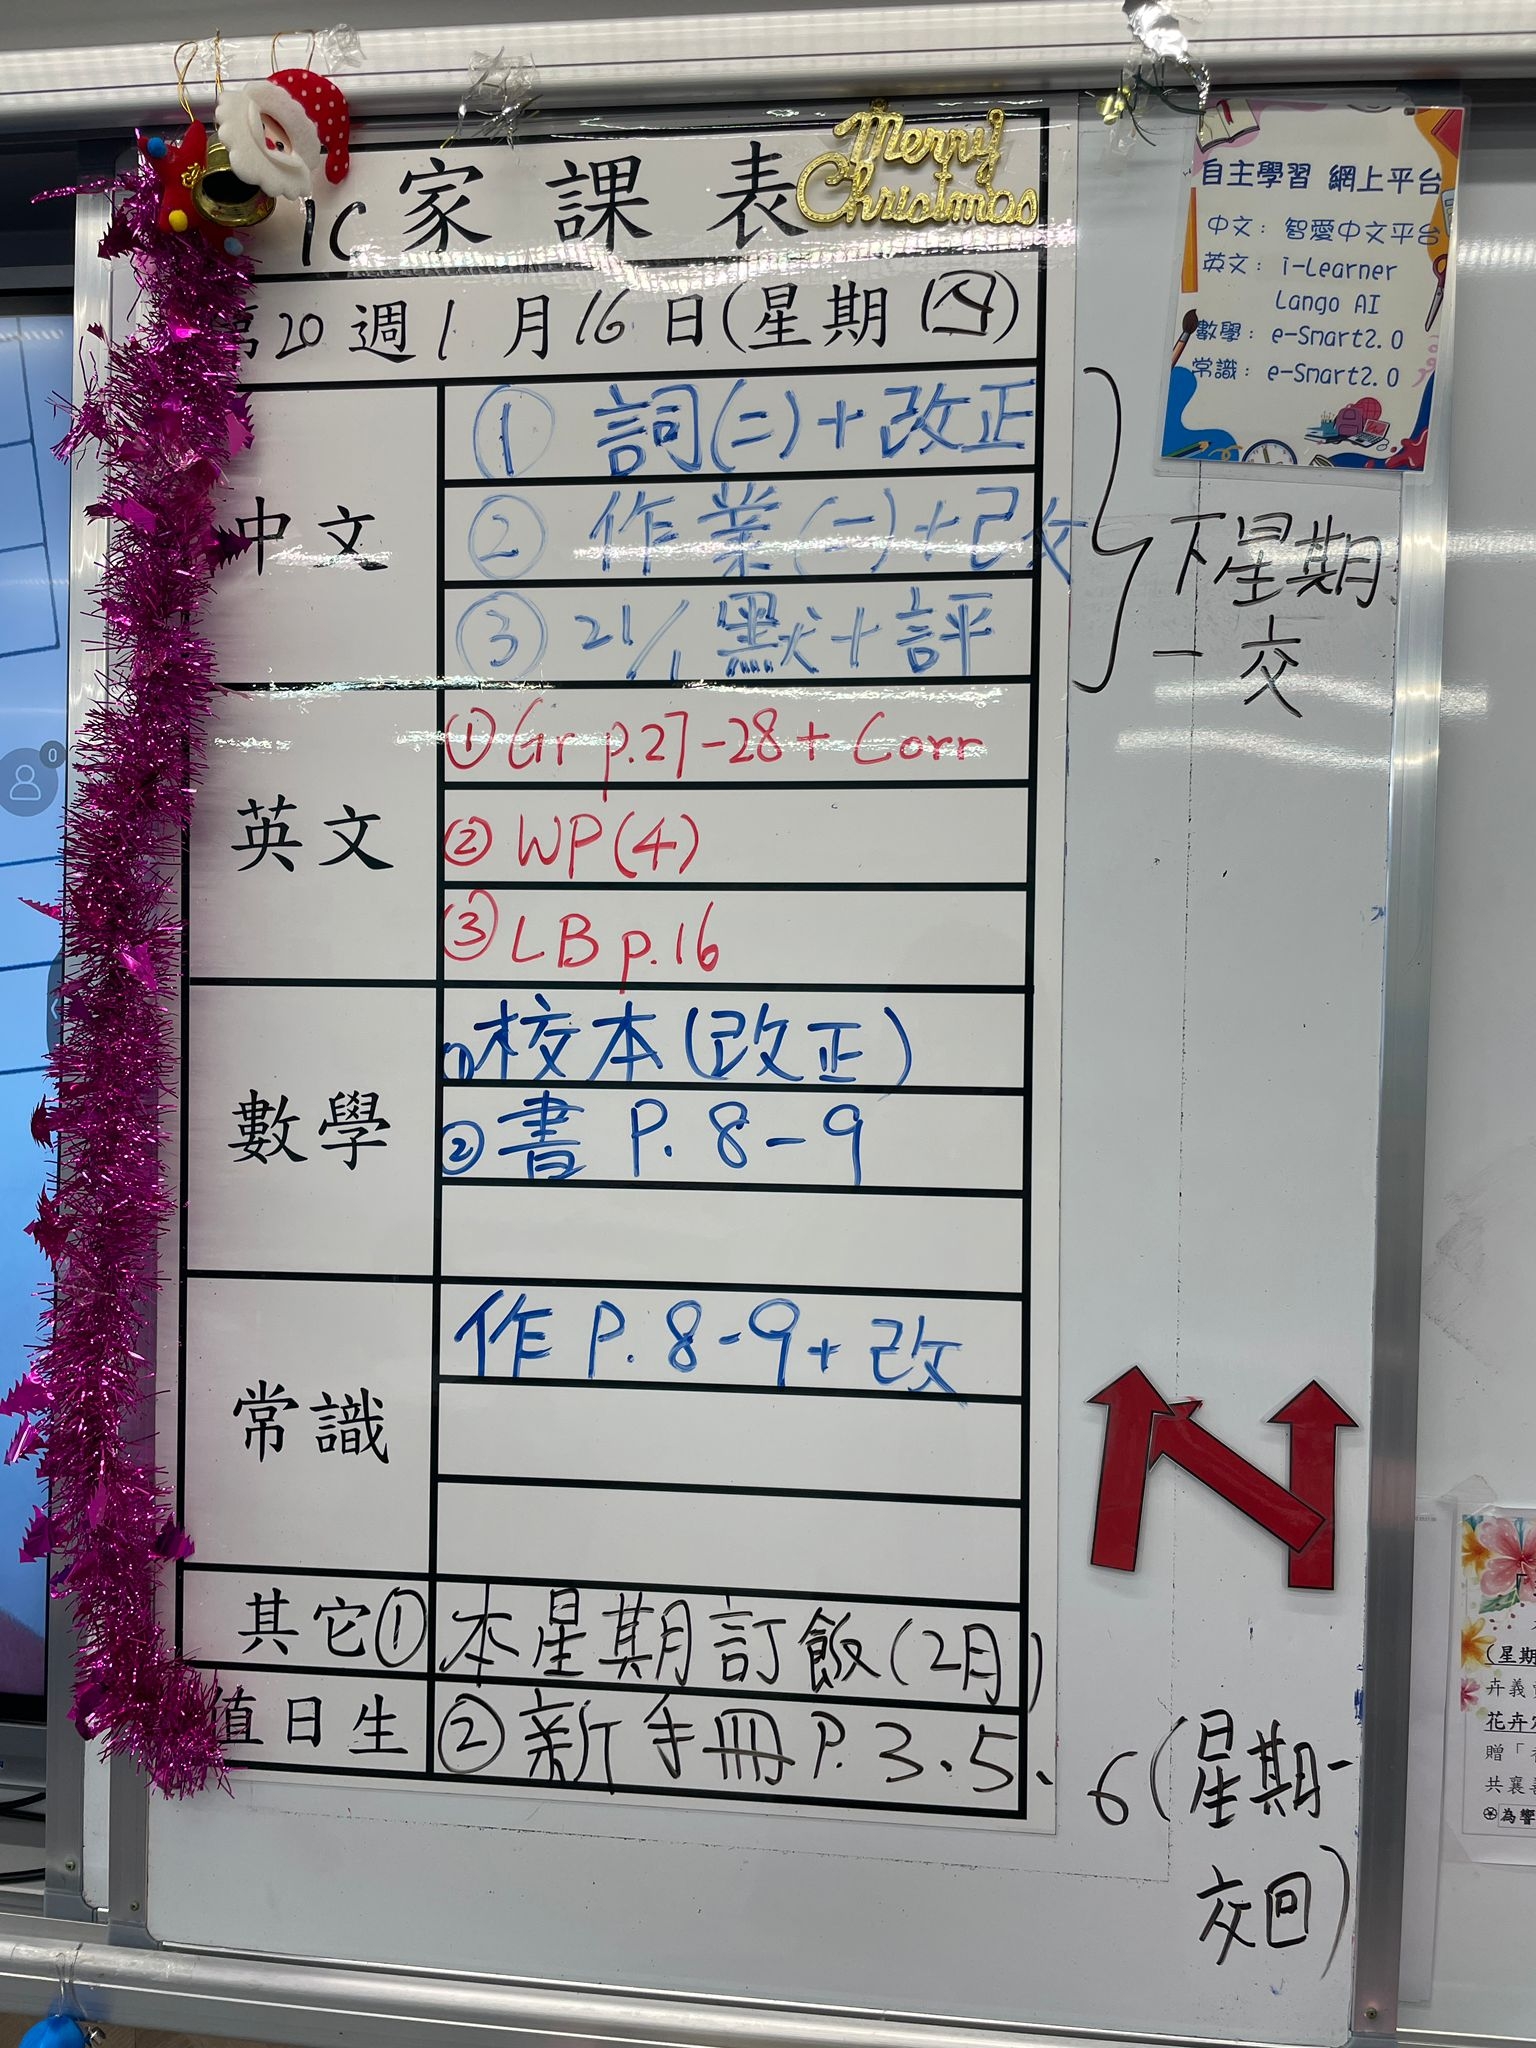 1C 家課表
Merry
Christmas
第20週1月16日(星期四)
中文
① 詞(二)+改正
② 作業(一)+改
③ 21/1 默+評
下星期
一交
英文
① Gr p.27-28 + Corr
② WP(4)
③ LB p.16
數學
① 校本(改正)
② 書 P. 8-9
常識
作 P. 8-9 + 改
其它① 本星期訂飯(2月)
值日生 ② 新手冊 P. 3、5、6(星期一
交回)
自主學習 網上平台
中文: 智愛中文平台
英文: i-Learner
Lango AI
數學: e-Smart2.0
常識: e-Smart2.0
0
(星期
卉義
花卉
贈「
共襄
為響